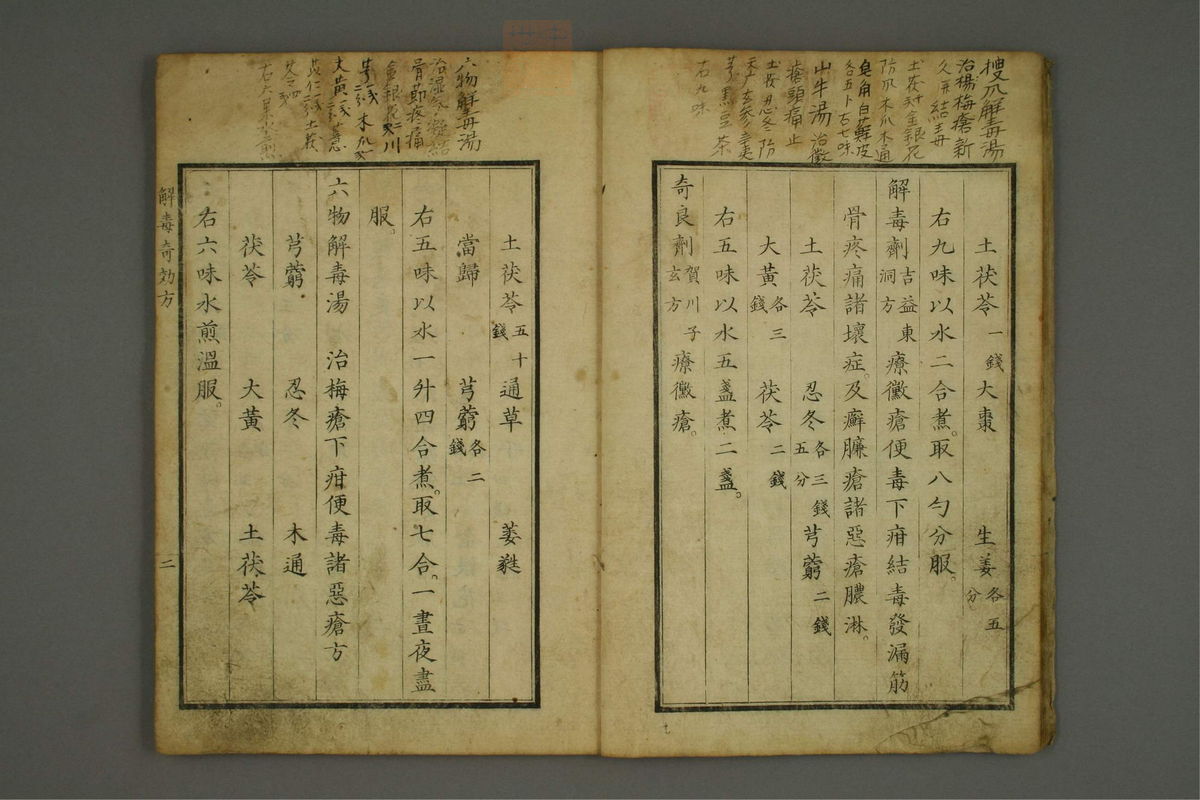 搜爪解毒湯
治楊梅瘡新
久并結毒
土茯 金銀花
防爪木爪木通
皂角白蘚皮
各五卜右七味
山牛湯 治黴
瘡頭痛止
土茯忍冬防
芎黒豆茶
右九味
土茯苓一錢 大棗 生姜各五分
右九味以水二合煮。取八勺分服。
解毒劑吉益東洞方 療黴瘡便毒下疳結毒發漏筋
骨疼痛諸壞症。及癬臁瘡諸惡瘡膿淋。
土茯苓 忍冬各三錢五分 芎藭二錢
大黃各三錢 茯苓二錢
右五味以水五盞煮二盞。
奇良劑賀川子玄方 療黴瘡。
六物解毒湯
治濕令凝結
骨節疼痛
金銀花 川
芎 木爪
大黃
右六
土茯苓五十錢 通草 萎蕤
當歸 芎藭各二錢
右五味以水一升四合煮。取七合。一晝夜盡
服。
六物解毒湯 治梅瘡下疳便毒諸惡瘡方
芎藭 忍冬 木通
茯苓 大黃 土茯苓
右六味水煎溫服。
解毒奇効方
二